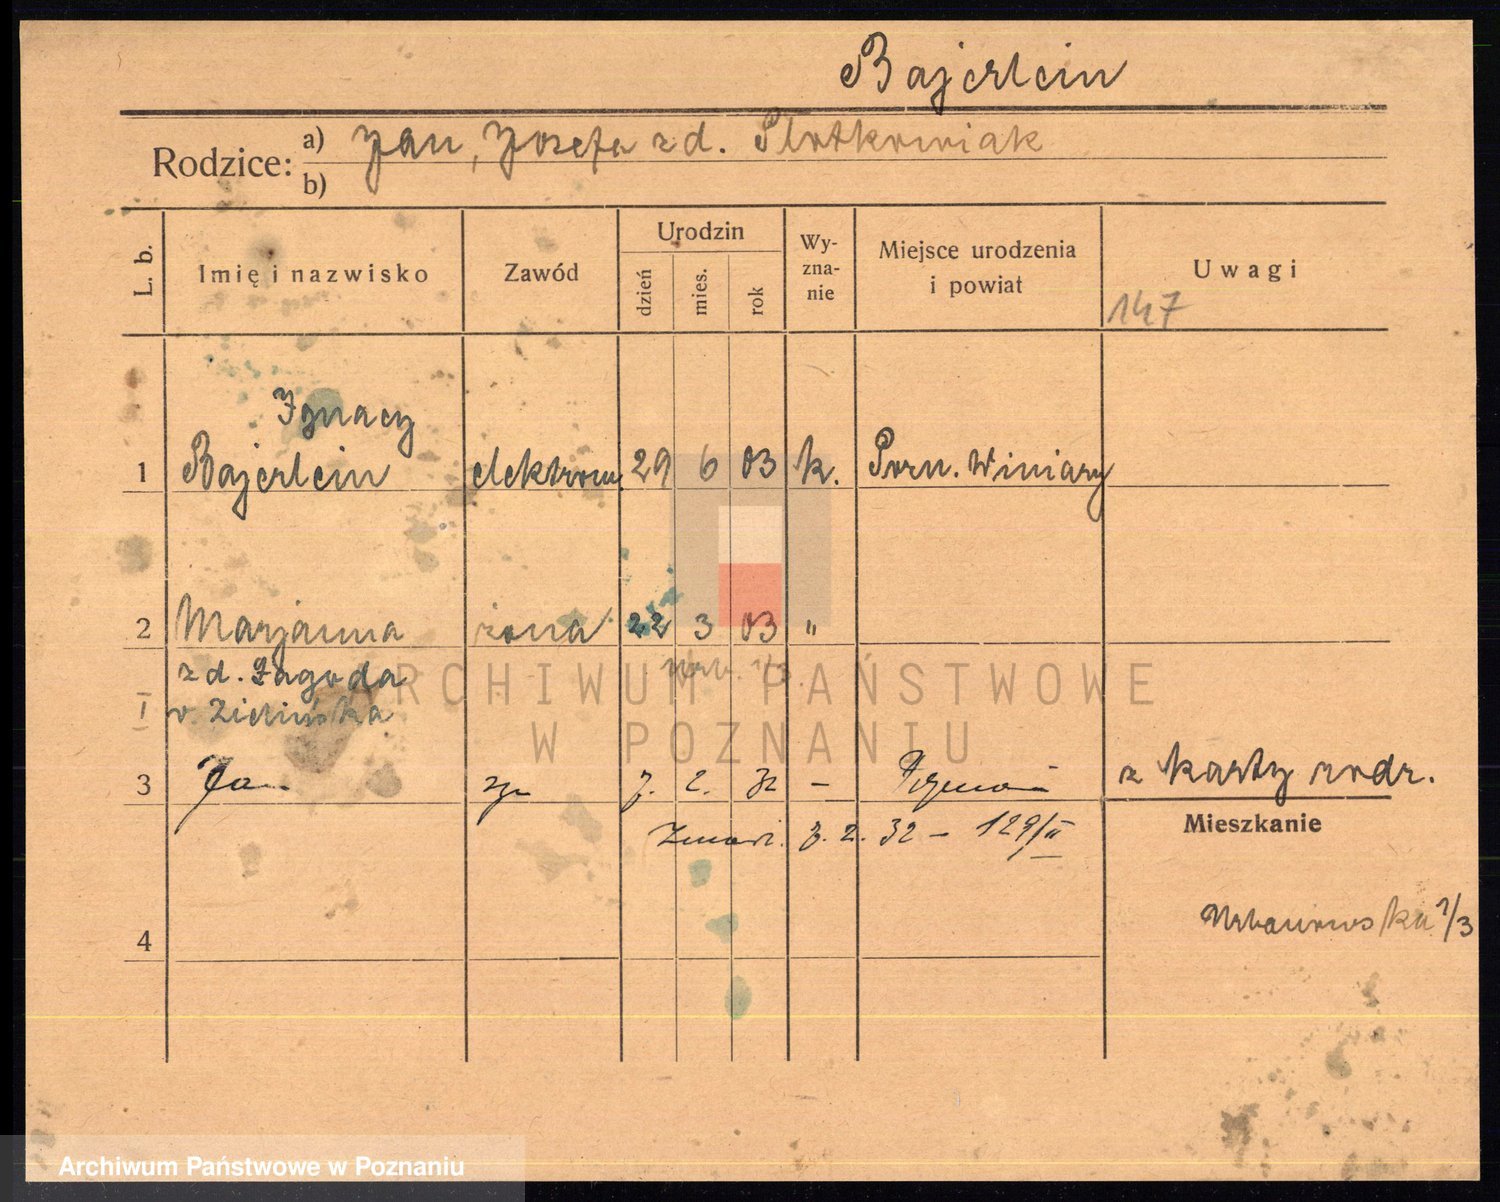 Bajerlein
Rodzice: a) Jan, Józefa z d. Płotkowiak
b)
L. b.
Imię i nazwisko
Zawód
Urodzin
dzień
mies.
rok
Wy-
zna-
nie
Miejsce urodzenia
i powiat
Uwagi
147
Ignacy
1 Bajerlein elektrom. 29 6 03 k. Pozn. Winiary
2 Marjanna żona 22 3 03 "
z d. Jagoda
v. Zielińska
3 Jan 7. 2. 32 – z karty rodz.
Zmarł. 8. 2. 32 – 129/II
Mieszkanie
Urbanowska 1/3
4
ARCHIWUM PAŃSTWOWE
W POZNANIU
Archiwum Państwowe w Poznaniu